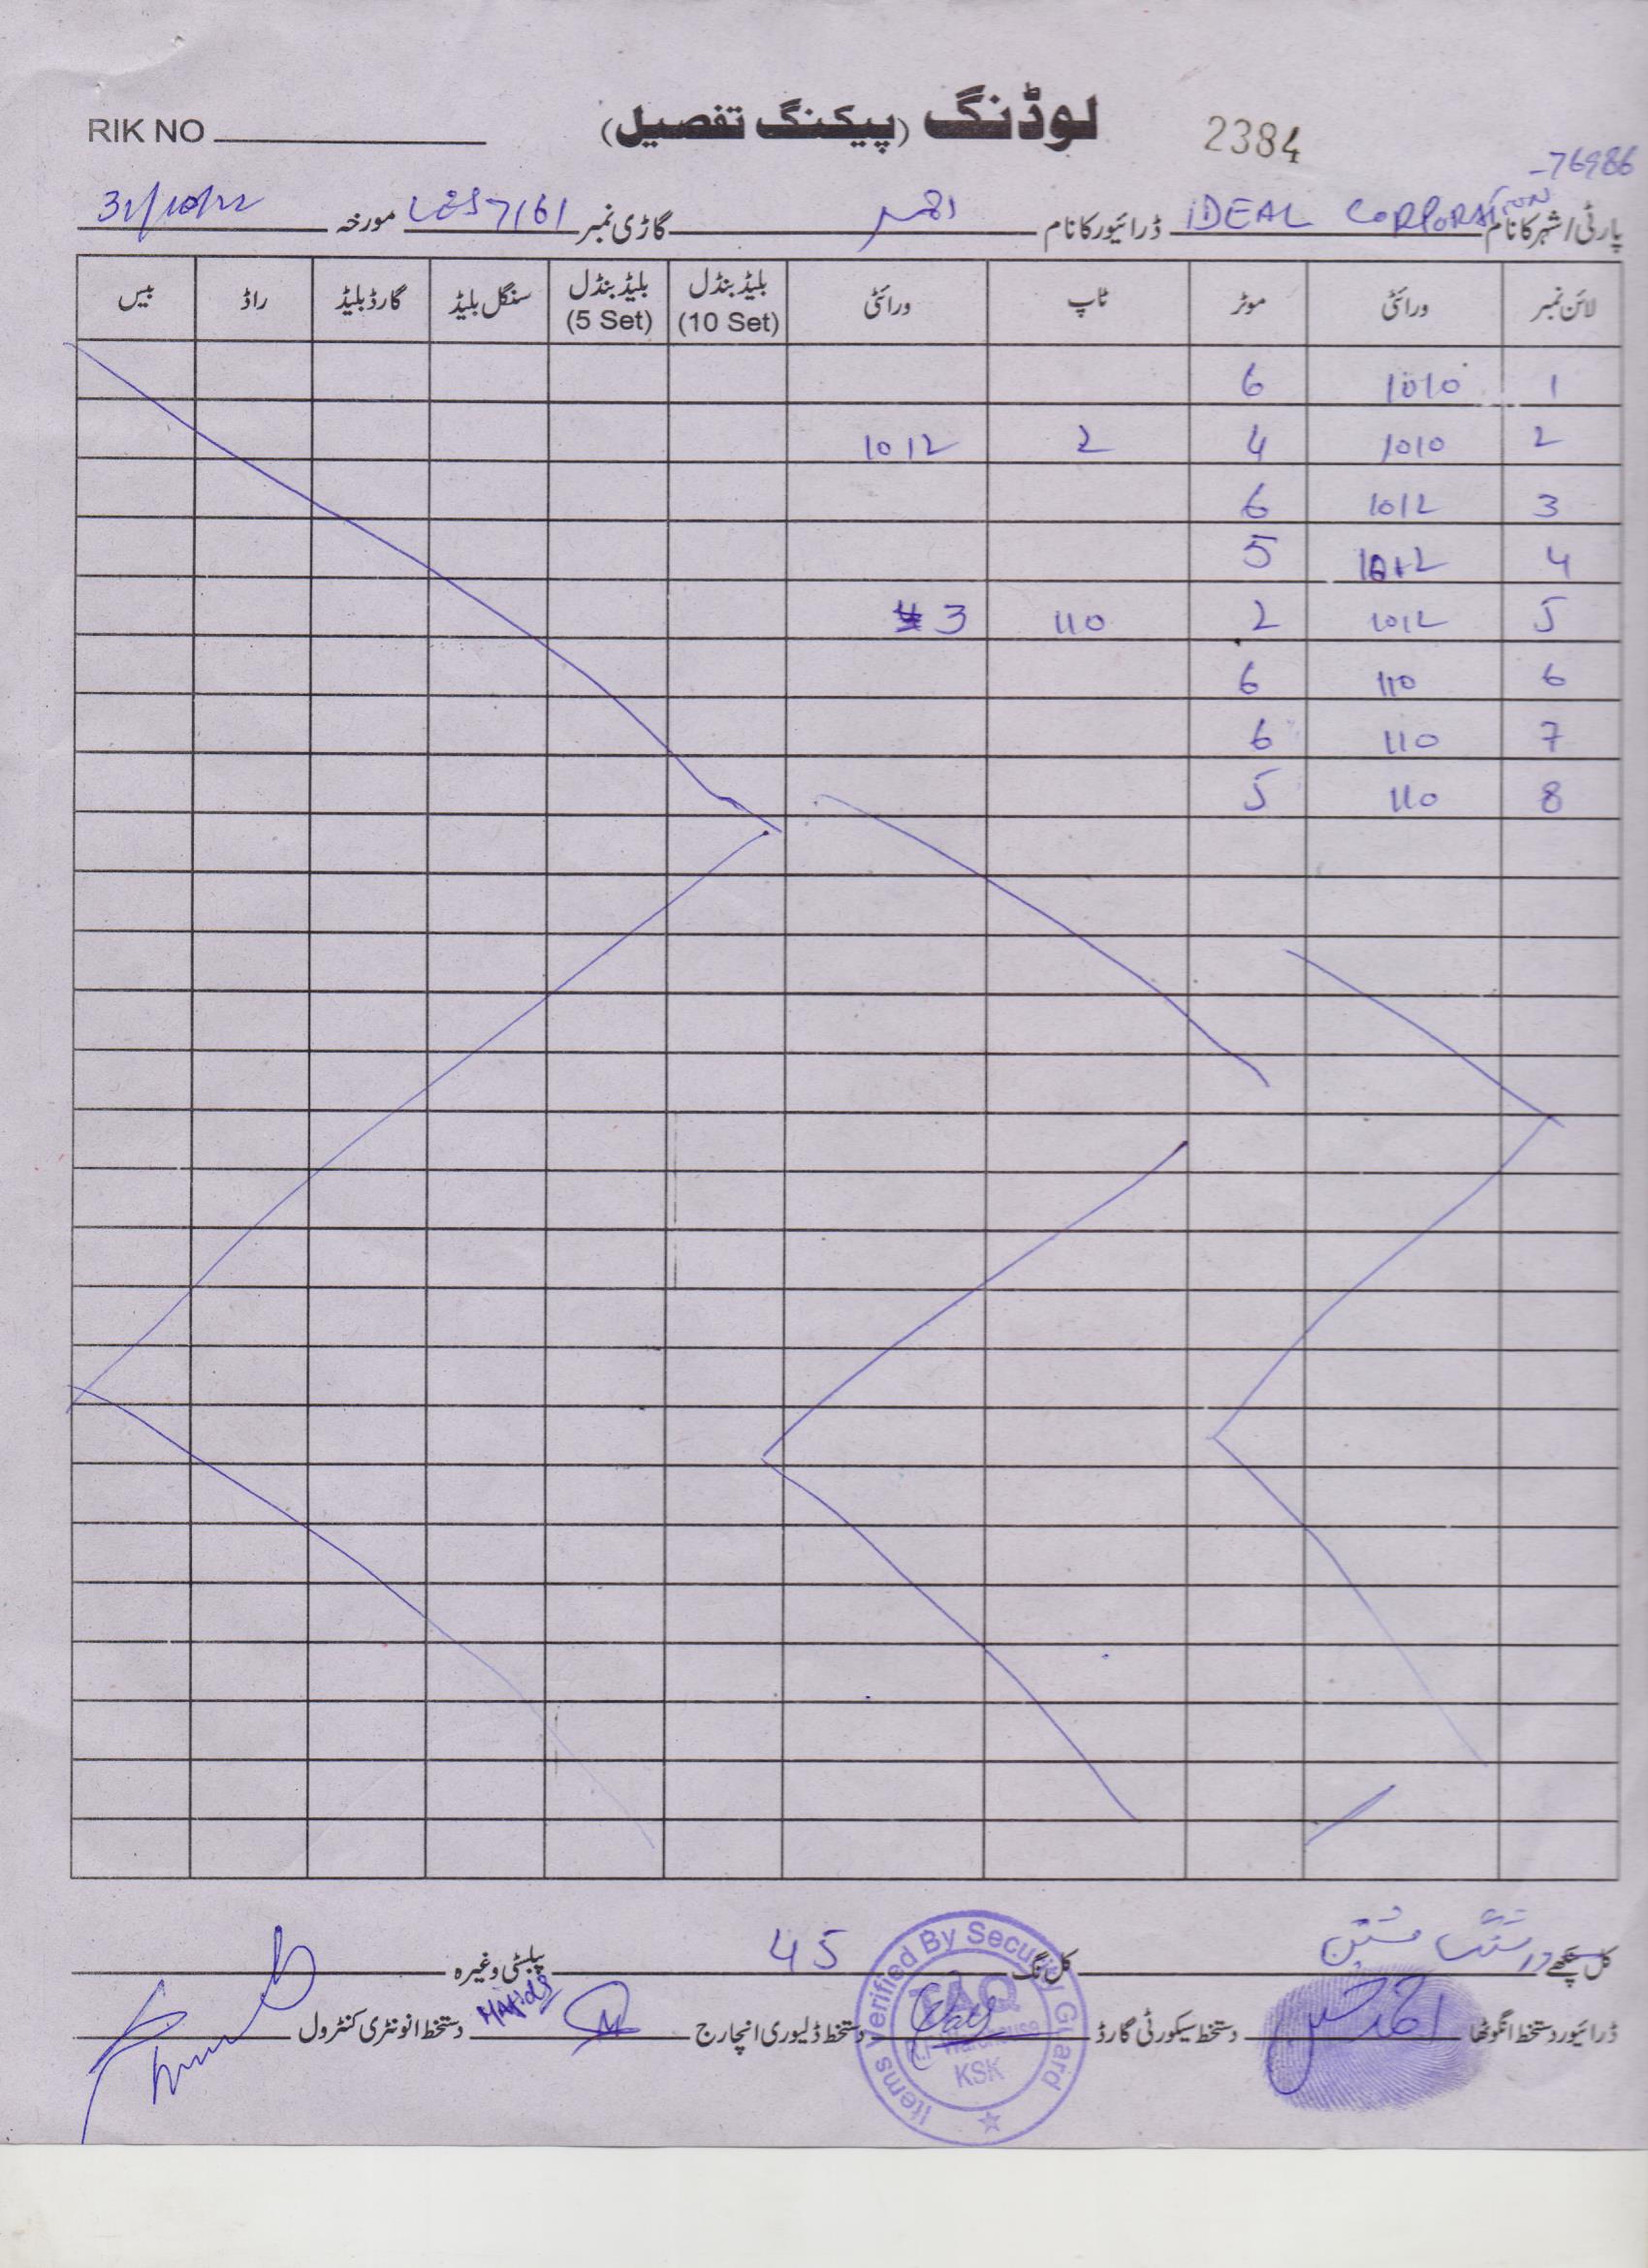 RIK NO لوڈنگ (پیکنگ تفصیل) 2384
-76986
پارٹی/شہر کا نام IDEAL CORPORATION ڈرائیور کا نام گاڑی نمبر LES 7161 مورخہ 31/10/22
لائن نمبر ورائٹی موٹر ٹاپ ورائٹی بلیڈ بنڈل (10 Set) بلیڈ بنڈل (5 Set) سنگل بلیڈ گارڈ بلیڈ راڈ بیس
1 1010 6
2 1010 4 2 1012
3 1012 6
4 1012 5
5 1012 2 110 3
6 110 6
7 110 6
8 110 5
کل پنکھے کل نگ 45 پبلسٹی وغیرہ
ڈرائیور دستخط انگوٹھا دستخط سیکورٹی گارڈ دستخط ڈلیوری انچارج دستخط انونٹری کنٹرول
Items Verified By Security Guard
KSK